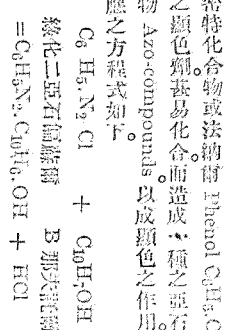 密特化合物或法納爾 Phenol C₆H₅O
之顯色劑甚易化合。而造成一種之亞石
物 Azo-compounds 以成顯色之作用。
應之方程式如下。
C₆ H₅. N₂. Cl + C₁₀H₇OH
綠化二亞石 B 那
=C₆H₅N₂. C₁₀H₆. OH + HCl